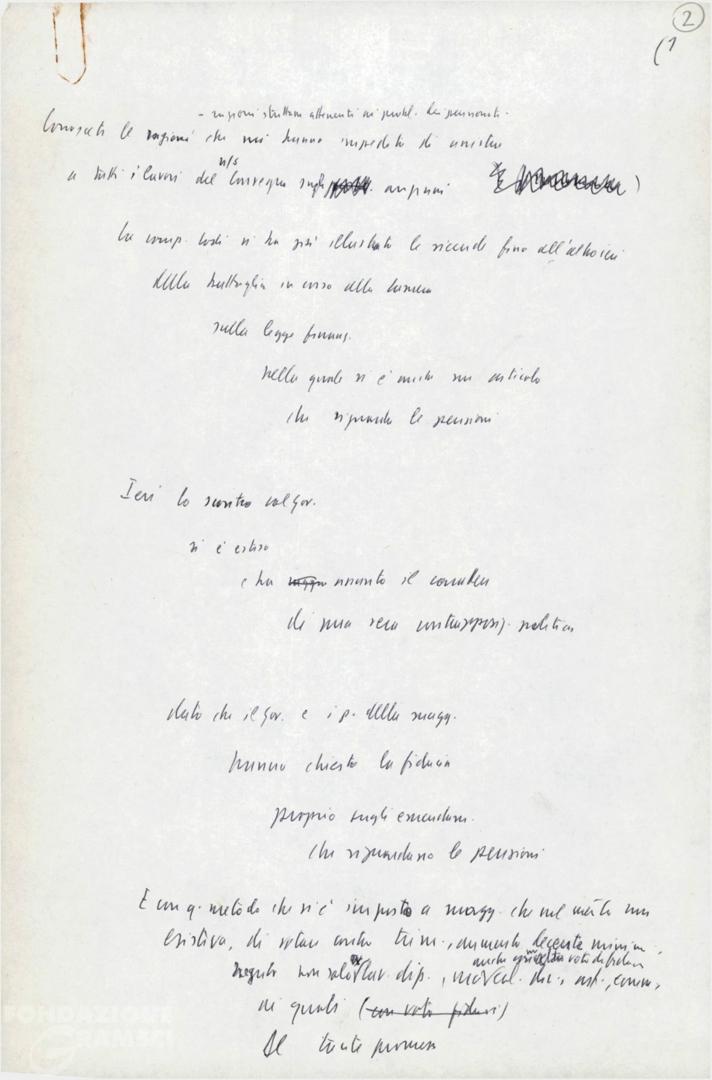 2
(1
- ragioni strettam. attenenti ai probl. dei pensionati.
Conoscete le ragioni che mi hanno impedito di assistere
a tutti i lavori del n/s Convegno sugli anziani
La comp. Lodi vi ha già illustrato le vicende fino all'altroieri
della battaglia in corso alla Camera
sulla legge finanz.
nella quale vi è anche un articolo
che riguarda le pensioni
Ieri lo scontro col gov.
si è esteso
e ha assunto il carattere
di una vera contrapposiz. politica
dato che il gov. e i p. della magg.
hanno chiesto la fiducia
proprio sugli emendam.
che riguardano le pensioni
E con q. metodo che si è imposto a magg. che nel merito non
esisteva, di votare contro trim., aumento decente minimi,
anche qui con voto di fiducia
segreto non solo lav. dip., ma col. dir., art., comm.,
ai quali (con voto fiducia)
tante promesse
FONDAZIONE
GRAMSCI